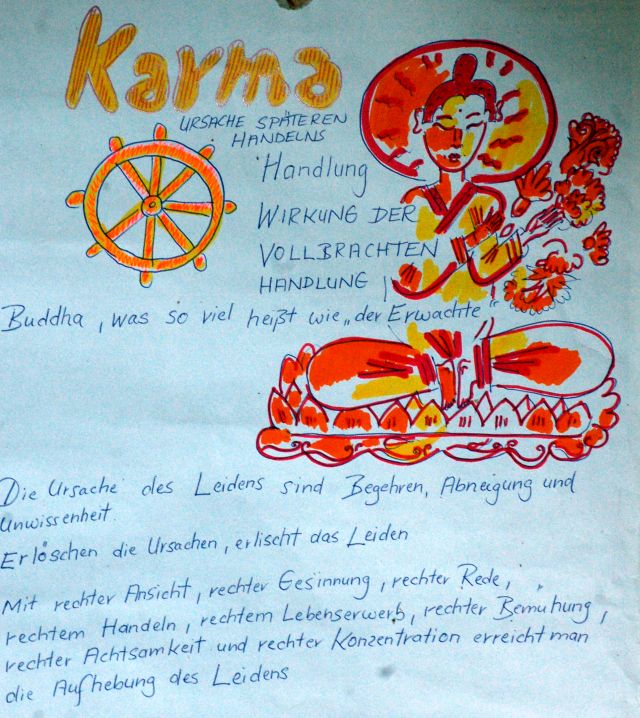 Karma
URSACHE SPÄTEREN
HANDELNS
Handlung
WIRKUNG DER
VOLLBRACHTEN
HANDLUNG
Buddha, was so viel heißt wie „der Erwachte“
Die Ursache des Leidens sind Begehren, Abneigung und
Unwissenheit.
Erlöschen die Ursachen, erlischt das Leiden
Mit rechter Ansicht, rechter Gesinnung, rechter Rede,
rechtem Handeln, rechtem Lebenserwerb, rechter Bemühung,
rechter Achtsamkeit und rechter Konzentration erreicht man
die Aufhebung des Leidens